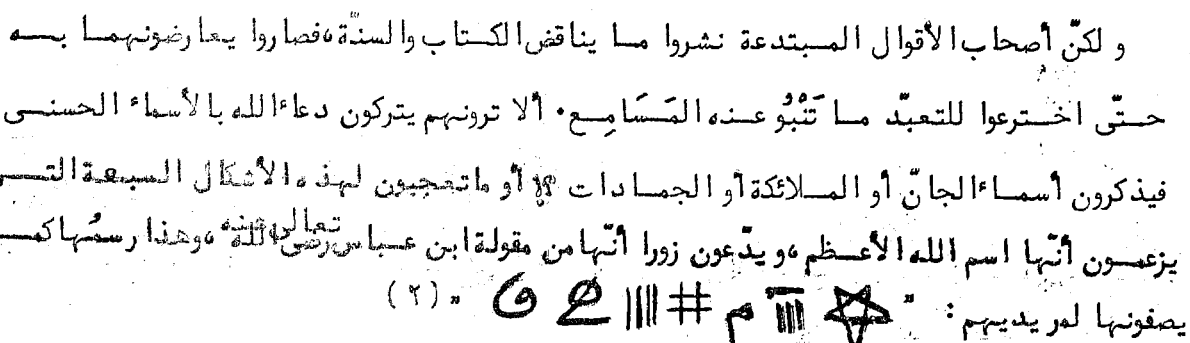 و لكنّ أصحاب الأقوال المبتدعة نشروا ما يناقض الكتاب والسنّة، فصاروا يعارضونهما به
حتّى اخترعوا للتعبّد ما تَنْبُو عنه المَسَامِع. ألا ترونهم يتركون دعاء الله بالأسماء الحسنى
فيذكرون أسماء الجانّ أو الملائكة أو الجمادات ؟! أو ما تعجبون لهذه الأشكال السبعة التي
يزعمون أنّها اسم الله الأعظم، ويدّعون زورا أنّها من مقولة ابن عباس رضي الله تعالى عنه، وهذا رسمُها كما
يصفونها لمريديهم : " م # |||| و " (٢)